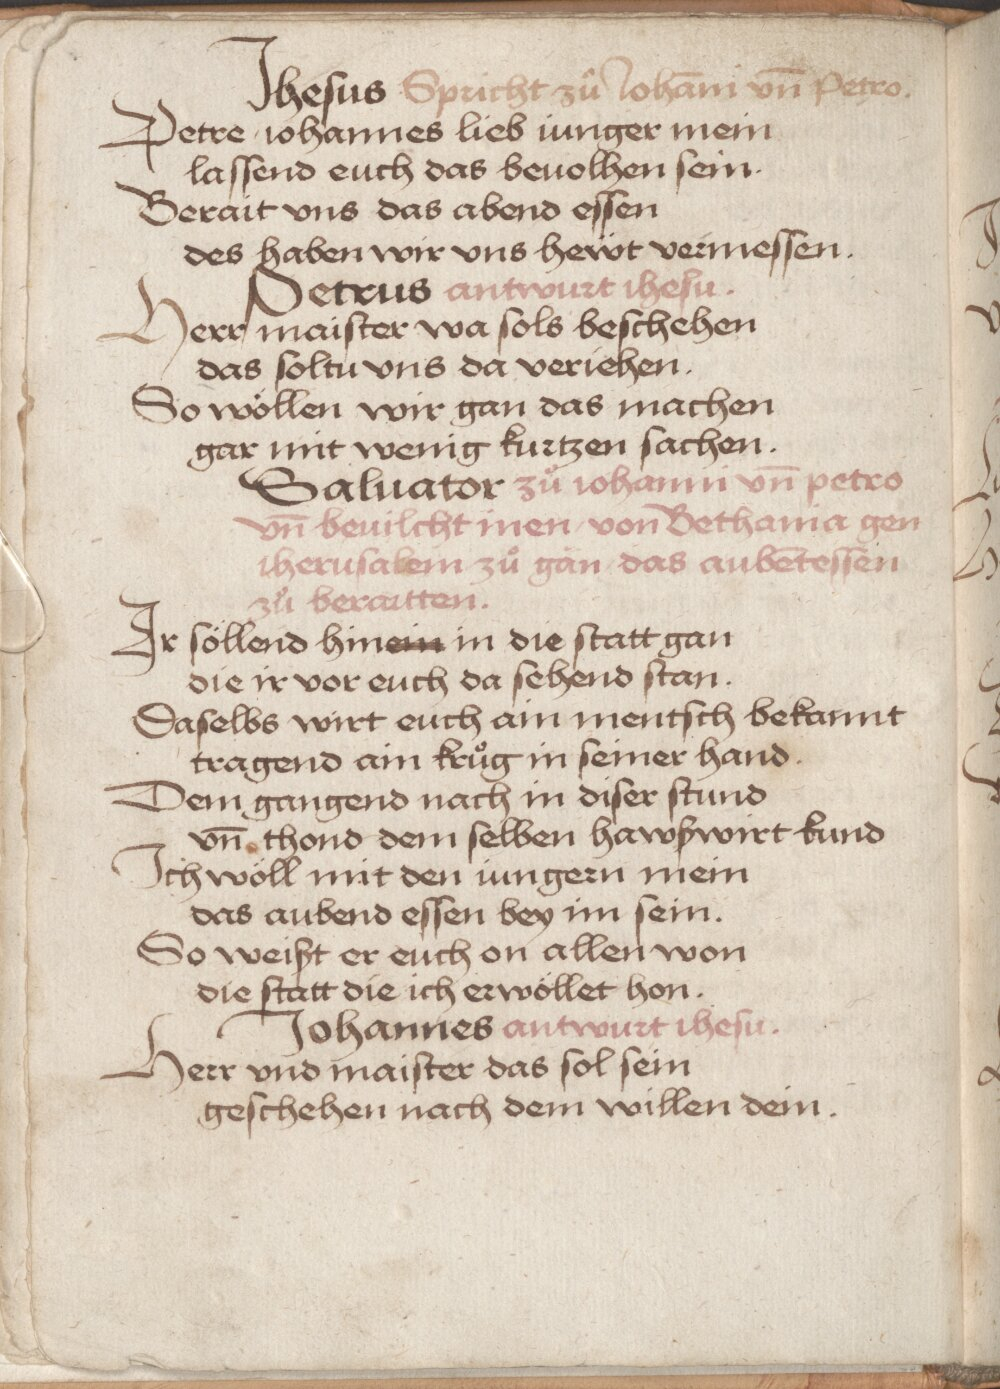 Jhesus Spricht zů Johāni vn̄ Petro.
Petre iohannes lieb iunger mein
lassend euch das beuolhen sein.
Berait vns das abend essen
des haben wir vns hewt vermessen.
Petrus antwurt ihesu.
Herr maister wa sols beschehen
das soltu vns da veriehen.
So wöllen wir gan das machen
gar mit wenig kurtzen sachen.
Saluator zů iohanni vn̄ petro
vn̄ beuilcht inen von Bethania gen
iherusalem zů gan das aubētessen
zů beraitten.
Ir söllend hinein in die statt gan
die ir vor euch da sehend stan.
Daselbs wirt euch ain mentsch bekannt
tragend ain krůg in seiner hand.
Dem gangend nach in diser stund
vn̄ thond dem selben hawßwirt kund
Ich wöll mit den iungern mein
das aubend essen bey im sein.
So weißt er euch on allen won
die statt die ich erwöllet hon.
Johannes antwurt ihesu.
Herr vnd maister das sol sein
geschehen nach dem willen dein.